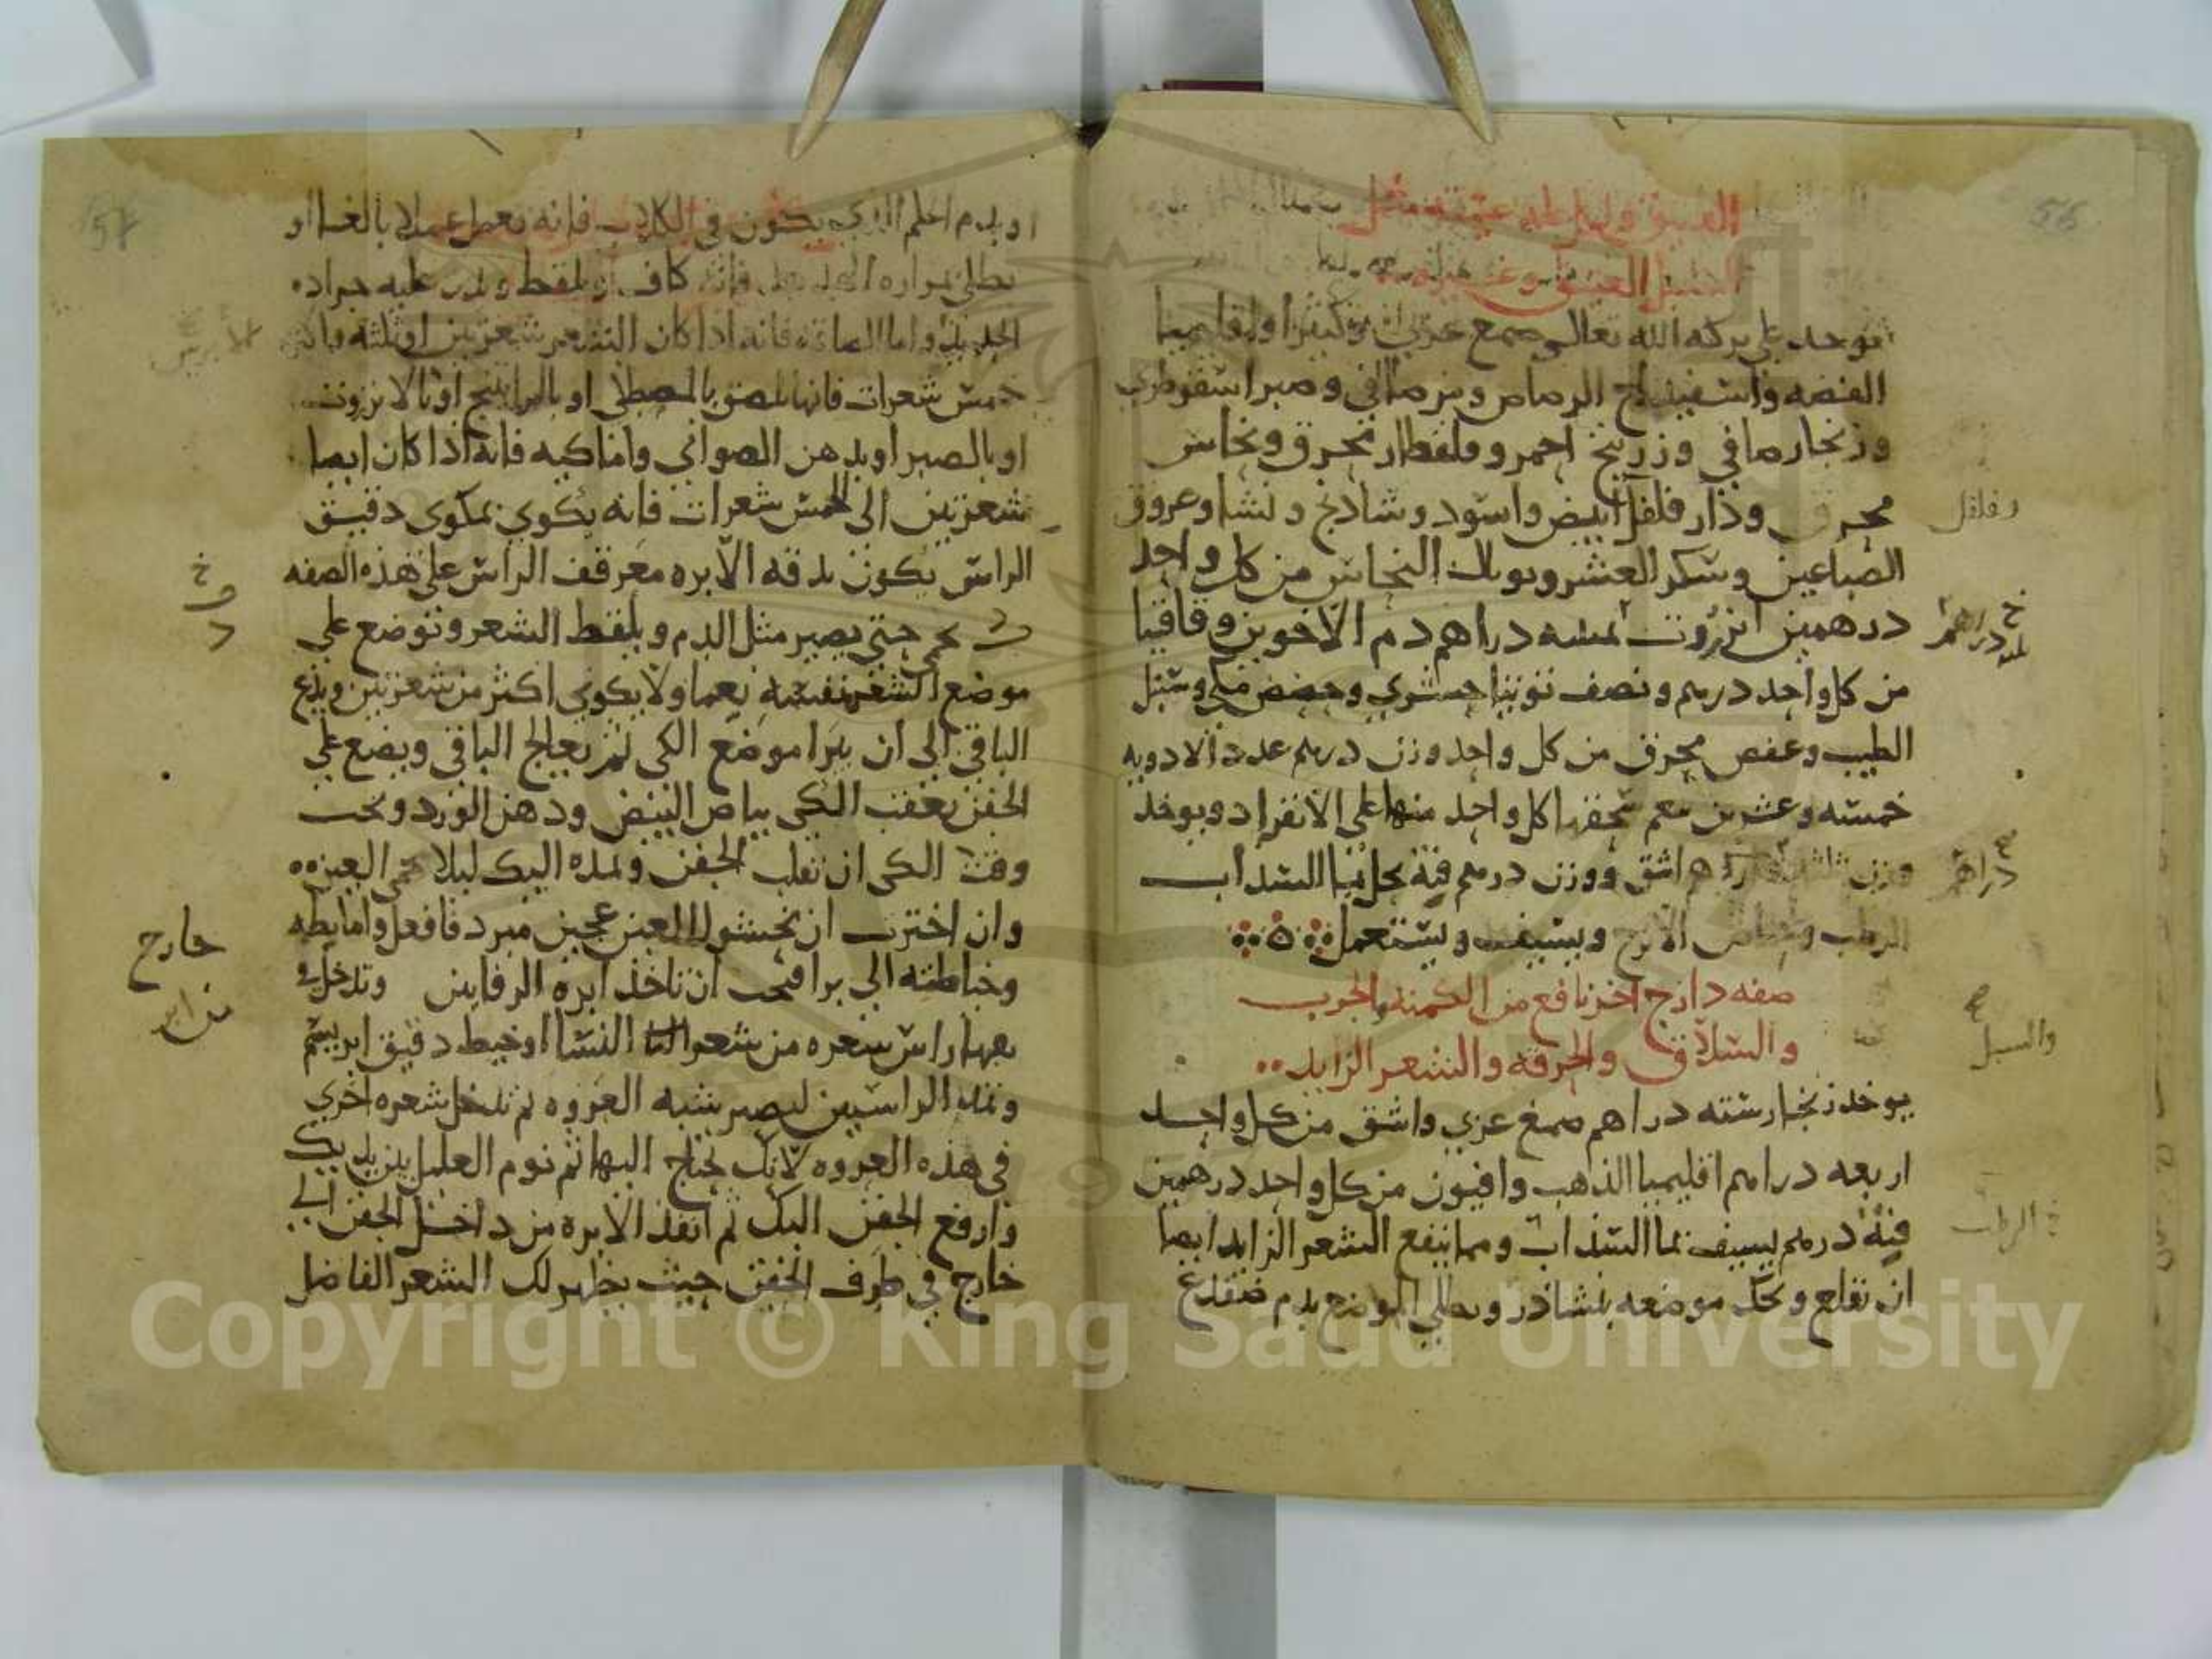 56
العتيق
السبل العتيق وغيره
يوخد على بركه الله تعالى صمع عربي وكثيرا واقليميا
الفضه واسفيداج الرصاص وبزر مافي وصبر اسقوطري
وزنجار صافي وزرنيخ احمر وقلقطار محرق ونحاس
محرق ودار فلفل ابيض واسود وشادنج ونشا وعروق
وفلفل
الصباعين وسكر العشر وتوبال النحاس من كل واحد
درهمين انزروت ثمنيه دراهم دم الاخوين وقاقيا
دراهم
من كل واحد درهم ونصف توتيا حشري وحضض مكي وسنبل
الطيب وعفص محرق من كل واحد وزن درهم عدد الادويه
خمسه وعشرين نعم سحقها كل واحد منها على الانفراد ويوخد
وزن دراهم اشق ووزن درهم قنه يحل بما السداب
دراهم
الرطب والاترج ويشيف ويستعمل
صفه دارج اخر نافع من الكمنه والجرب
والسلاق والحرقه والشعر الزايد
والسبل
يوخد زنجار سته دراهم صمغ عربي واشق من كل واحد
اربعه دراهم اقليميا الذهب وافيون من كل واحد درهمين
قنه درهم يشيف بما السداب ومما ينفع الشعر الزايد ايضا
الرطب
ان تقلع وتحك موضعه بنشادر ويطلى الموضع بدم ضفدع
57
او بدم الحلم الذي يكون في الكلاب فانه يعمل عملا بالغا او
يطلى بمراره فانه كاف او يلقط ويذر عليه جراده
الحديد واما الصاقه فانه اذا كان الشعر شعرتين او ثلثه والى
خمس شعرات فانها تلصق بالمصطكى او بالراتينج او بالانزروت
او بالصبر او بدهن الصواني واما كيه فانه اذا كان ايضا
شعرتين الى الخمس شعرات فانه يكوي بمكوى دقيق
الراس يكون بدقه الابره معرقف الراس على هذه الصفه
يحمى حتى يصير مثل الدم ويلقط الشعر وتوضع على
موضع الشعر نفسه نعما ولا يكوي اكثر من شعرتين ويدع
الباقي الى ان يبرا موضع الكي ثم يعالج الباقي ويضع على
الجفن بعقب الكي بياض البيض ودهن الورد ونحب
وقت الكي ان تقلب الجفن وتمده اليك ليلا تحمى العين
وان اخترت ان تحشو العين عجين مبرد فافعل واما بطه
خارج
وخياطته الى برا فيجب ان تاخذ ابره الرفاين وتدخل في
بعها راس شعره من شعر النسا او خيط دقيق ابريسم
وتمد الراسين ليصير شبه العروه ثم تدخل شعره اخري
في هذه العروه لانك تحتاج اليها ثم نوم العليل بين يديك
وارفع الجفن اليك ثم انفذ الابره من داخل الجفن الى
خارج في طرف الجفن حيث يظهر لك الشعر الفاضل
Copyright © King Saud University